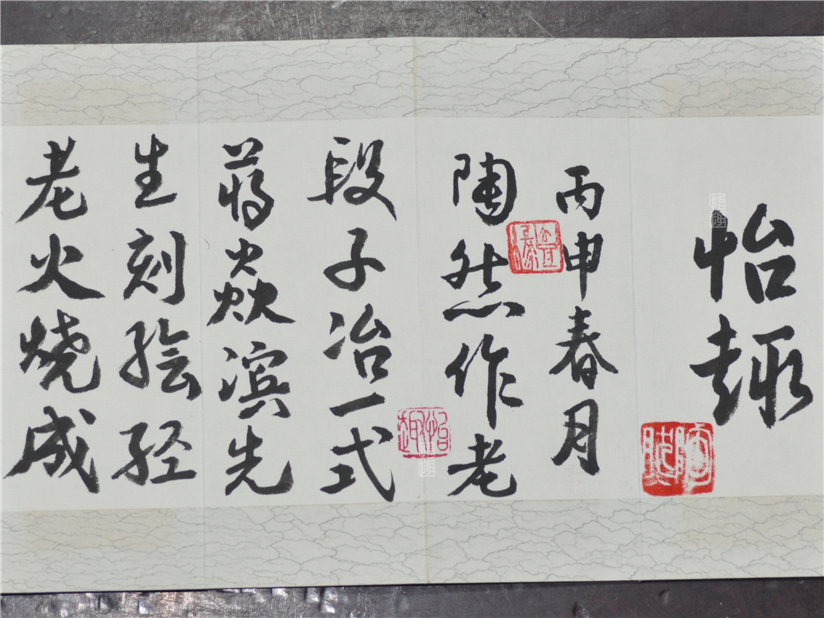 怡趣
丙申春月
陶然作老
段子冶一式
蒋焱滨先
生刻绘经
老火烧成
怡趣